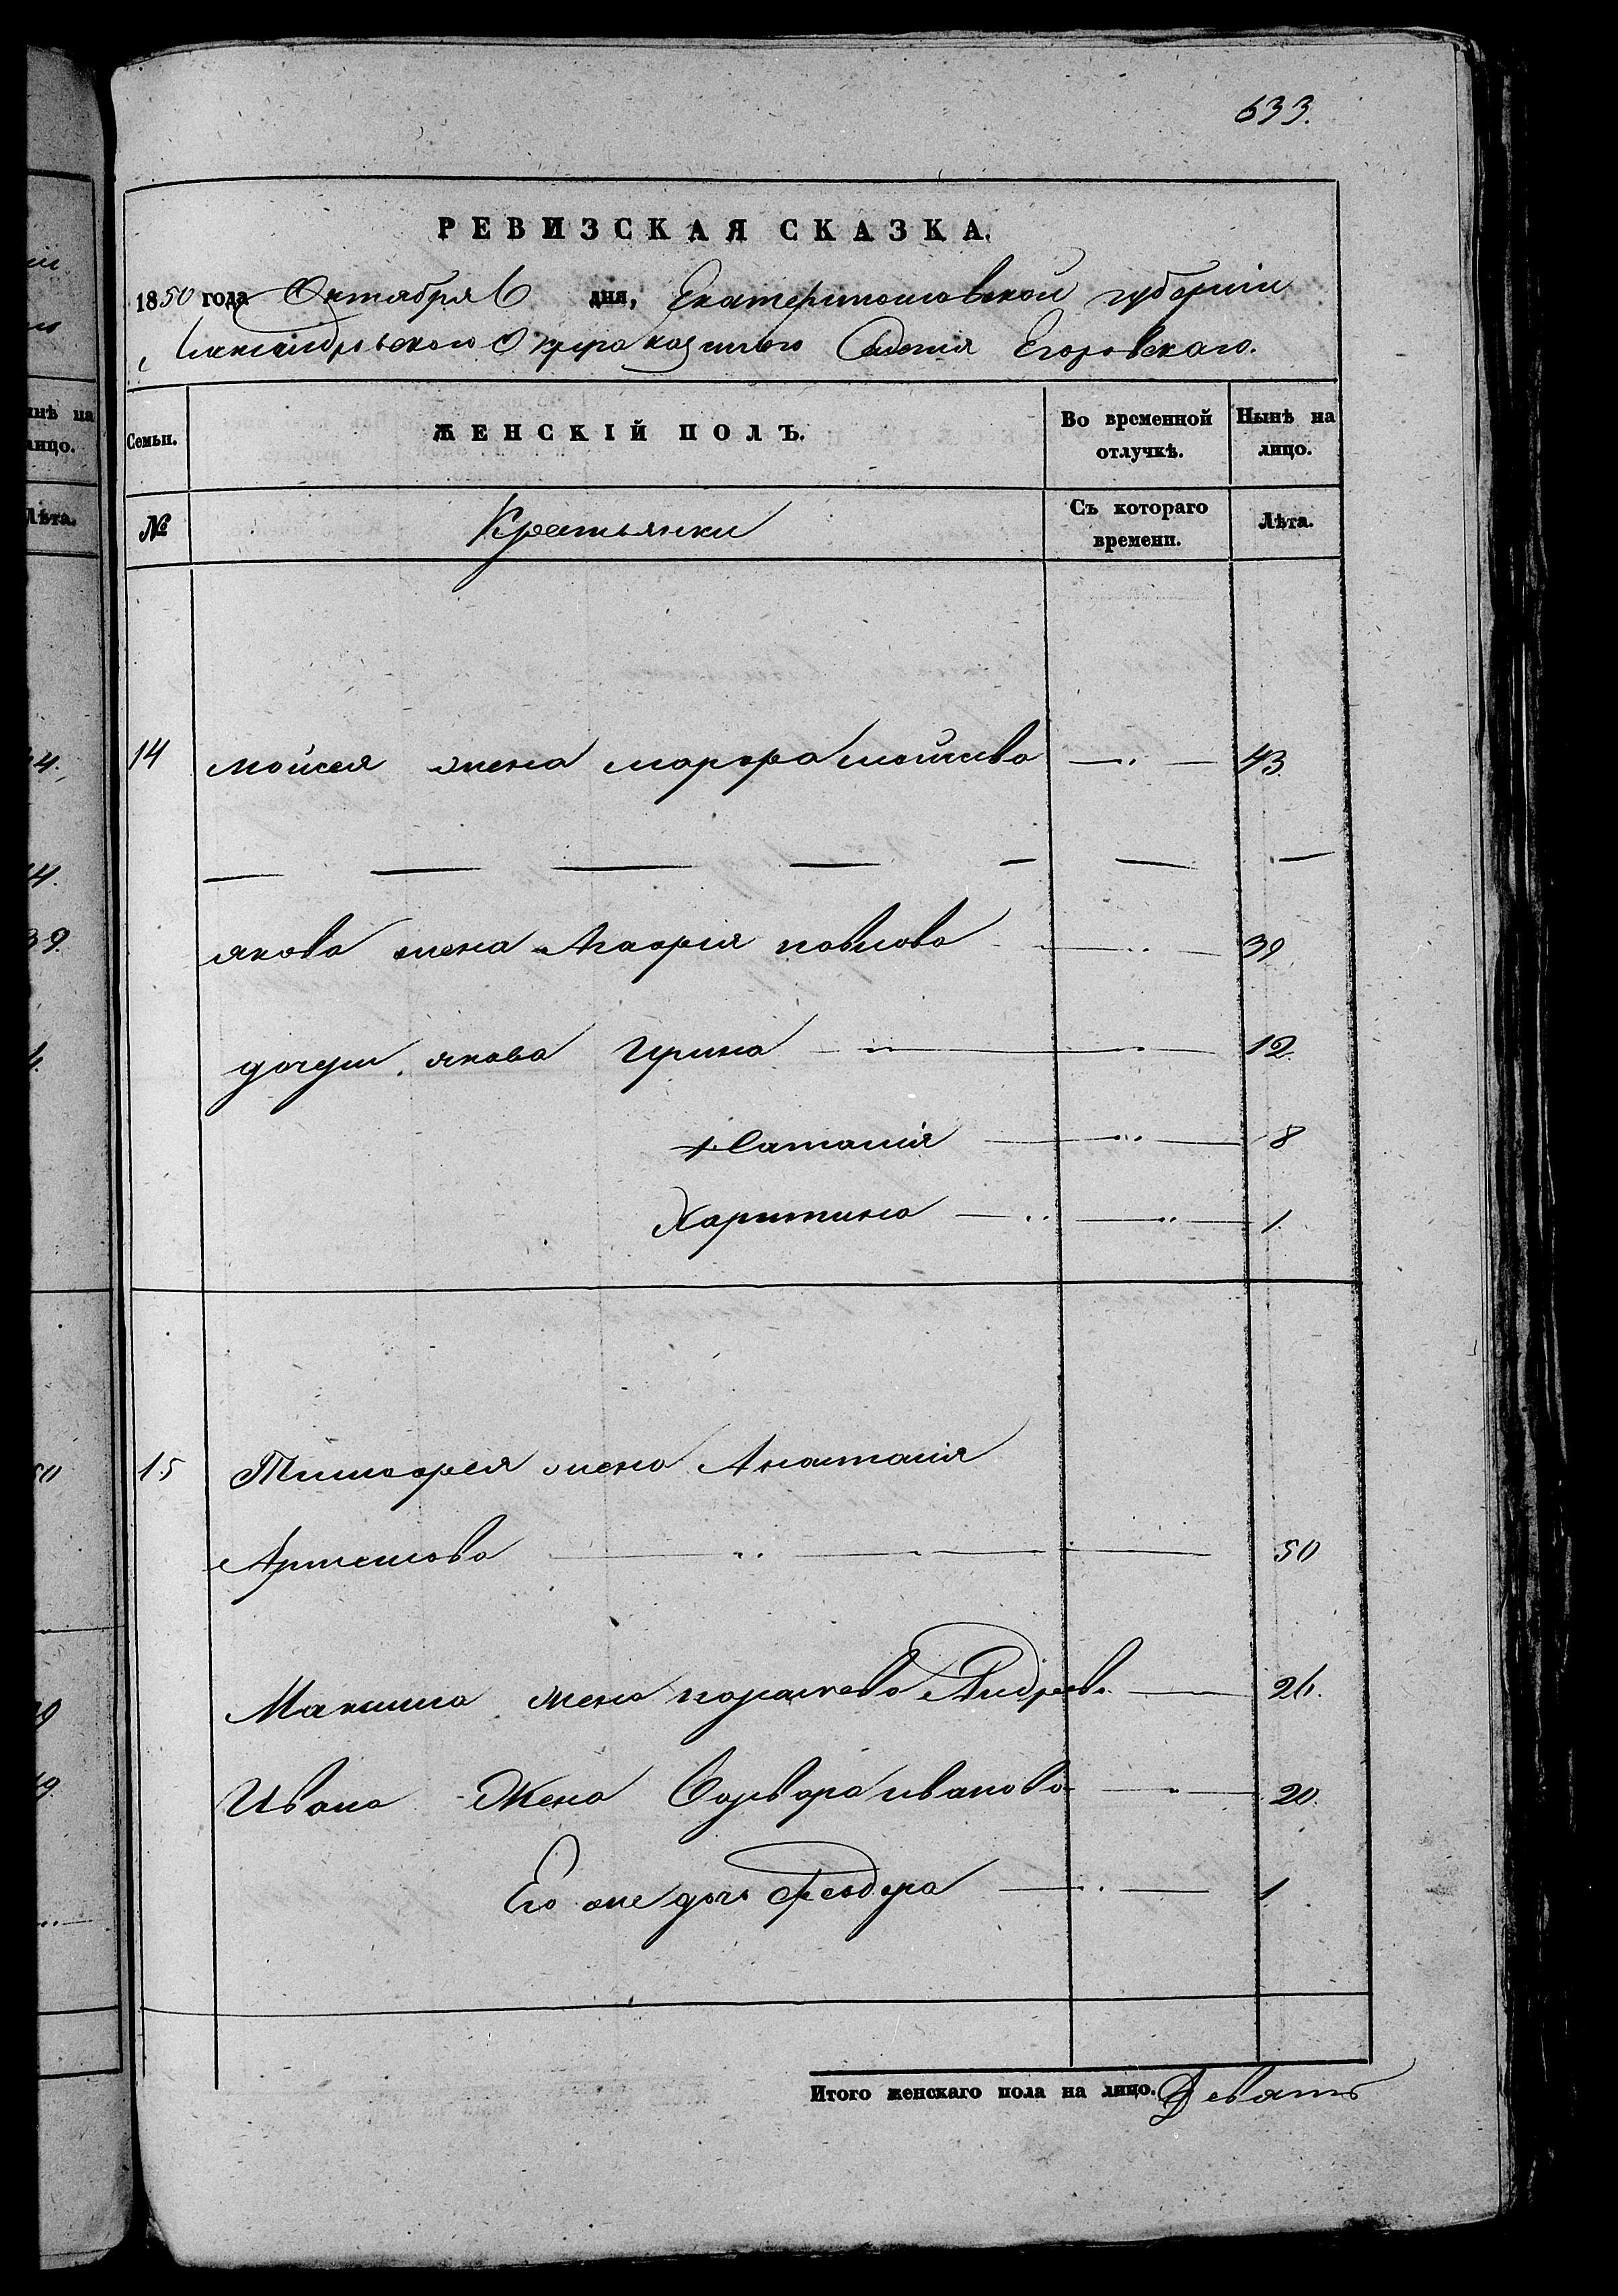 633.
РЕВИЗСКАЯ СКАЗКА.
1850 года Октября 6 дня, Екатеринославской губернiи
Александровского Округа казенного Селенiя Егоровскаго.
Семьи. ЖЕНСКIЙ ПОЛЪ. Во временной отлучкѣ. Нынѣ на лицо.
№ Крестьянки Съ котораго времени. Лѣта.
14 мойсея жена марфа 43.
якова жена Агафiя павлова 39
дочери якова Ирина 12.
Наталiя 8
Харитина 1.
15 Тимофея жена Анастасiя
Артемова 50
Максима жена параскева Андреева 26.
Ивана Жена Варвара иванова 20.
Его же дочь Феодора 1
Итого женскаго пола на лицо. Девять